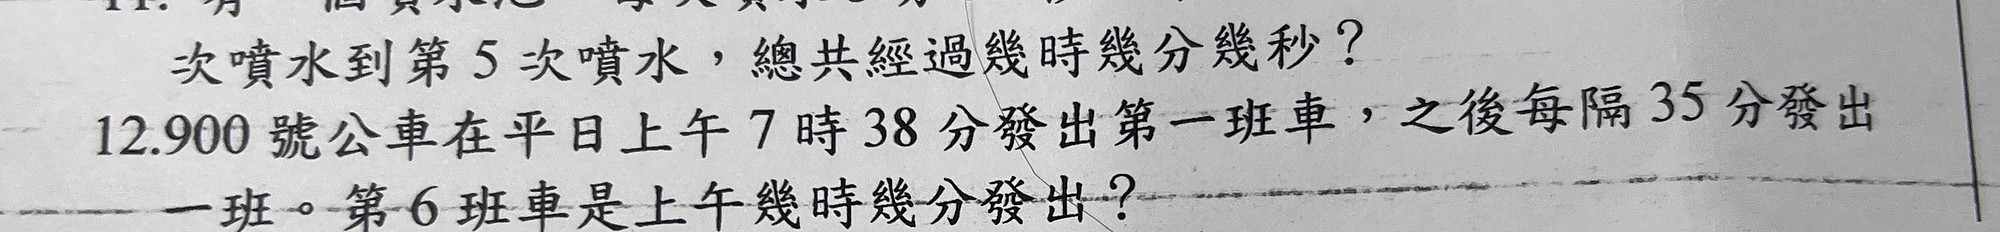 次噴水到第 5 次噴水，總共經過幾時幾分幾秒？
12.900 號公車在平日上午 7 時 38 分發出第一班車，之後每隔 35 分發出
一班。第 6 班車是上午幾時幾分發出？